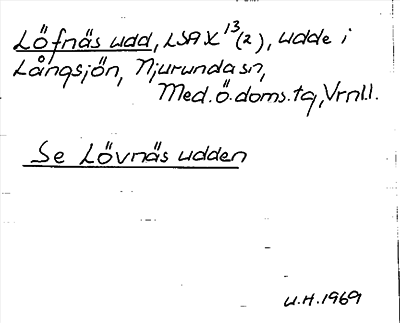 Löfnäs udd, LSA X 13 (2), udde i
Långsjön, Njurunda sn,
Med. ö. doms. tg, Vrnl.l.
Se Lövnäs udden
U.H. 1969